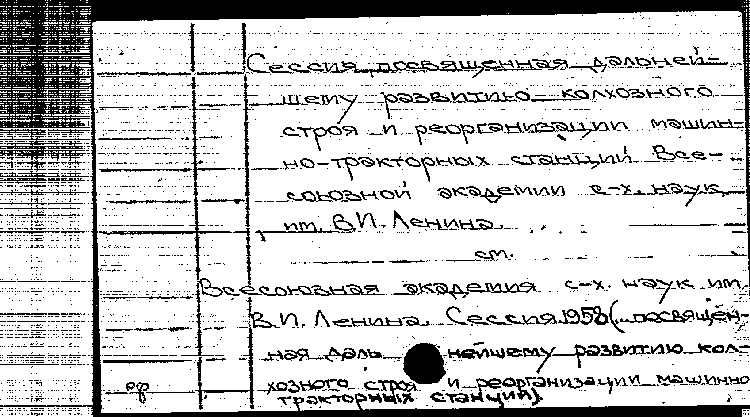 Сессия, посвященная дальней-
шему развитию колхозного
строя и реорганизации машин-
но-тракторных станций Все-
союзной академии с-х. наук
им. В.И. Ленина.
см.
Всесоюзная академия с-х. наук им.
В.И. Ленина. Сессия 1958 (...посвящен-
ная даль нейшему развитию кол-
хозного строя и реорганизации машинно
тракторных станций).